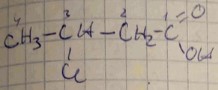 4 3 2 1 O
CH₃-CH-CH₂-C
OH
Cl